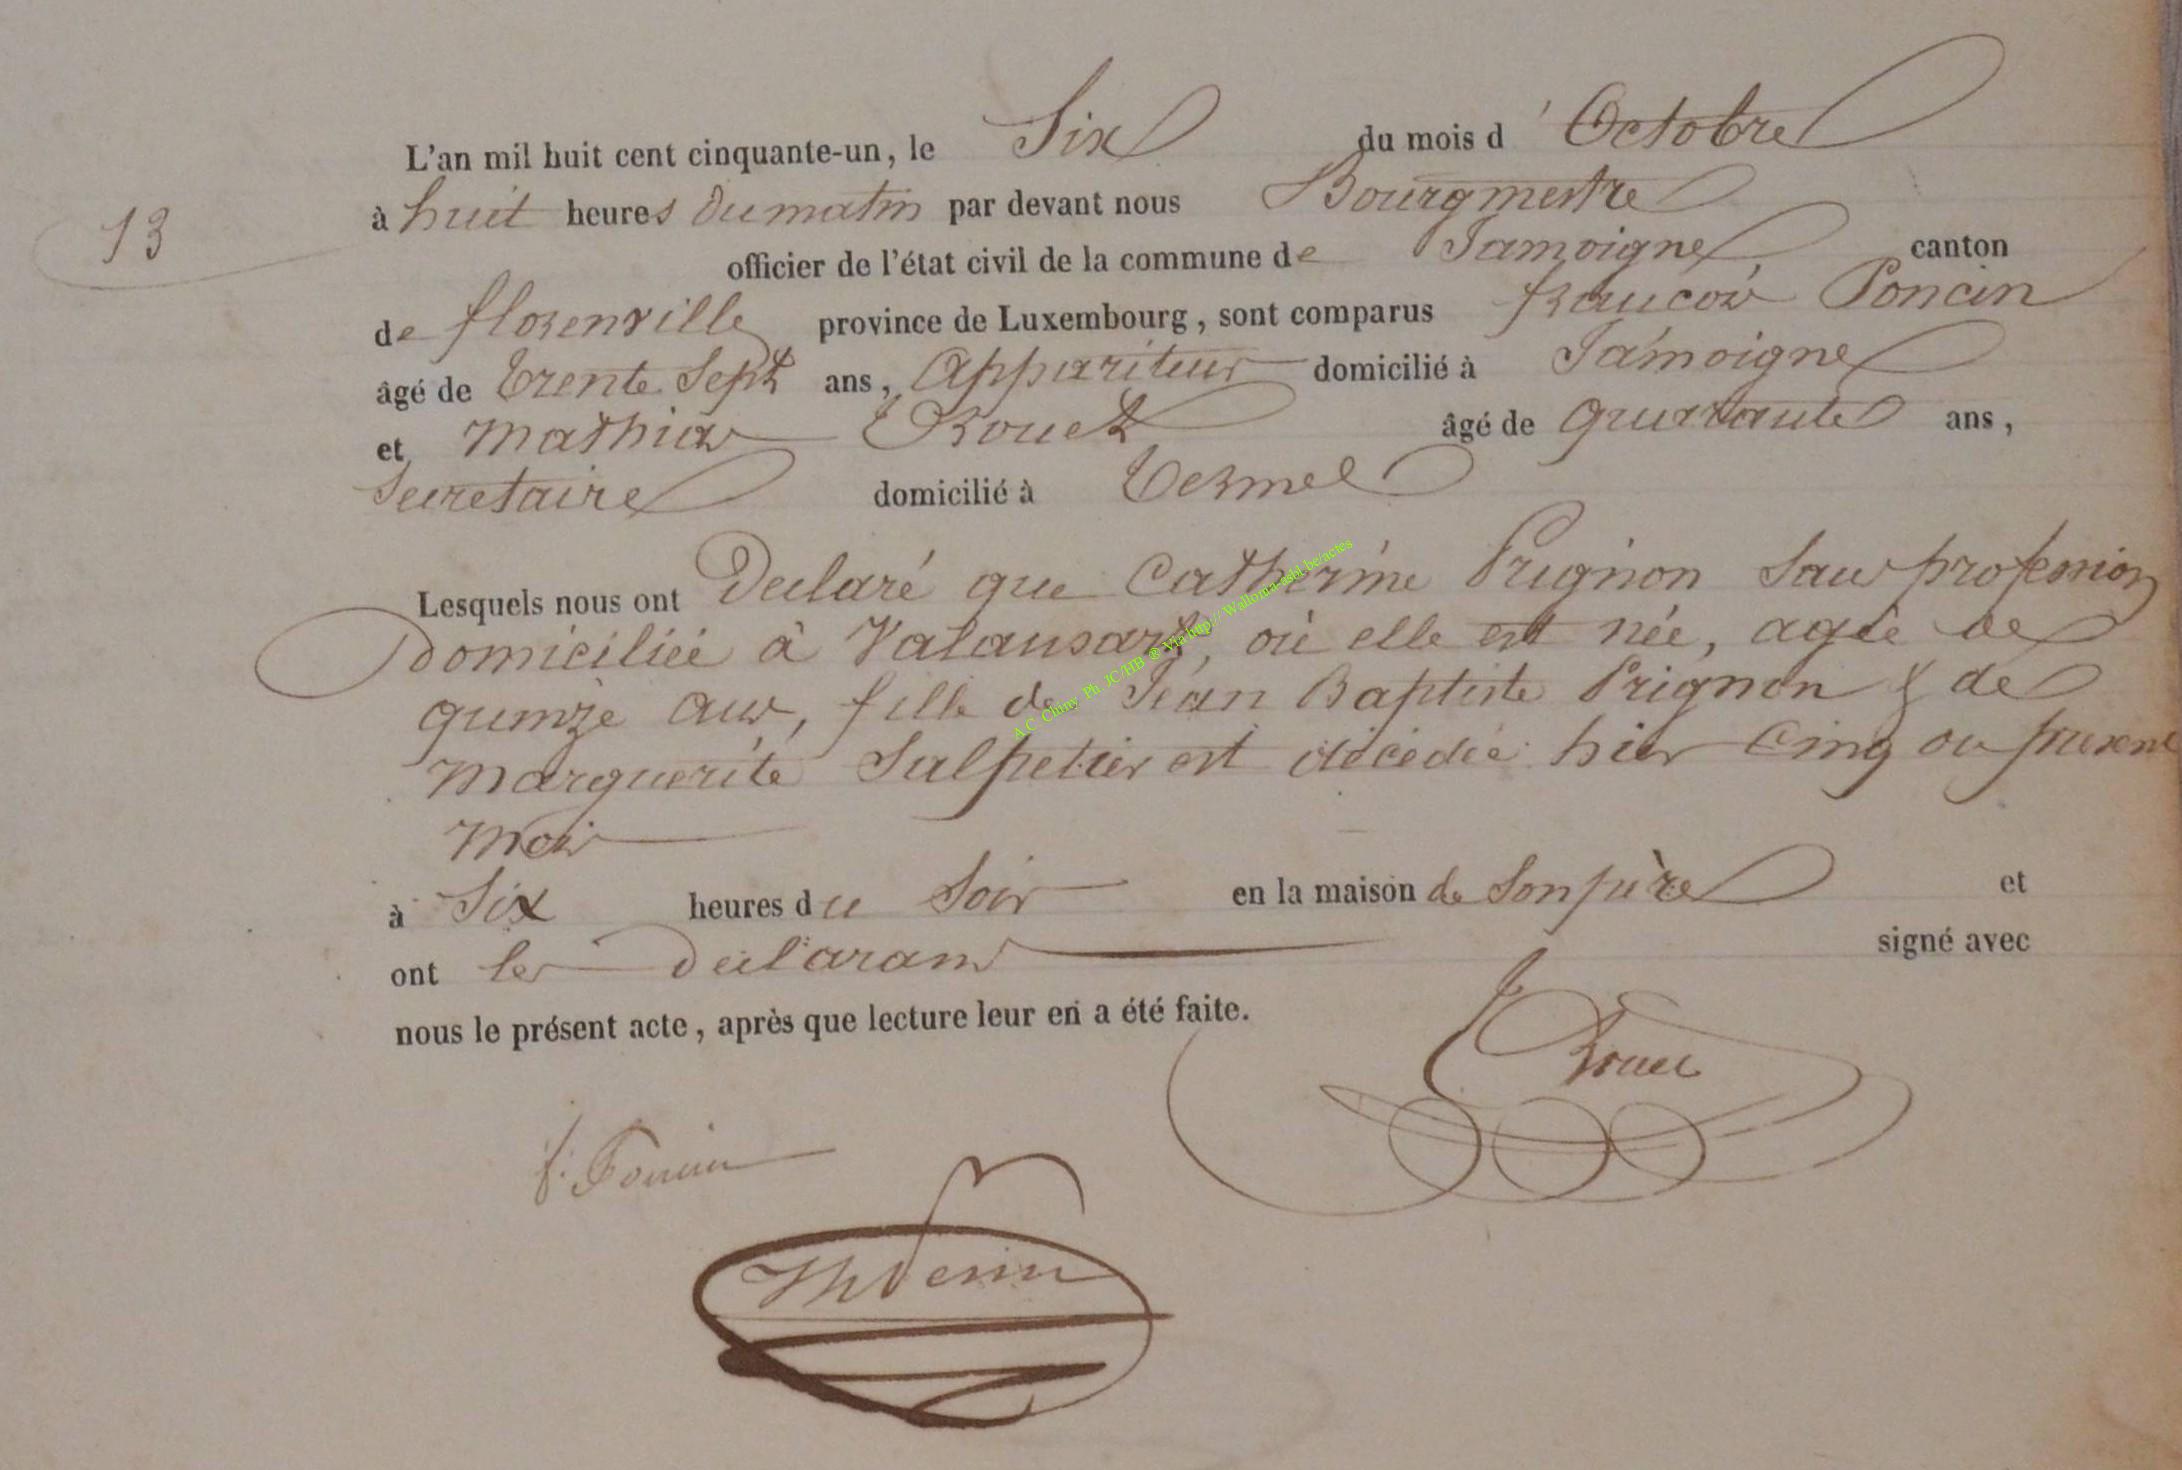 L'an mil huit cent cinquante-un, le Six du mois d'Octobre
13
à huit heures du matin par devant nous Bourgmestre
officier de l'état civil de la commune de Jamoigne, canton
de florenville province de Luxembourg, sont comparus francois Poncin
âgé de trente Sept ans, Appariteur domicilié à Jamoigne
et Mathias Rouet âgé de quarante ans,
Secretaire domicilié à termel
Lesquels nous ont Declaré que Catherine Prignon Sans profession
Domiciliéé à Valansart, où elle est née, agée de
quinze ans, fille de Jean Baptiste Prignon & de
Marguerite Salpetier est décédée hier Cinq du present
Mois
à Six heures du Soir en la maison de Son père et
ont les Declarans signé avec
nous le présent acte, après que lecture leur en a été faite.
Rouet
f. Poncin
A.C. Chiny Ph. JC/HB ® Via http://Wallonia-asbl.be/actes